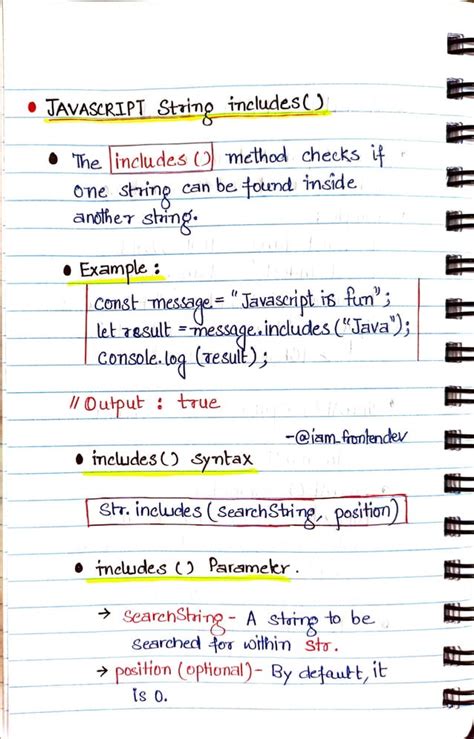 • JAVASCRIPT String includes()
• The includes() method checks if
one string can be found inside
another string.
• Example :
const message = "Javascript is fun";
let result = message.includes("Java");
Console.log (result);
// Output : true
-@iam.frontendev
• includes() syntax
Str. includes (searchString, position)
• includes () Parameter.
→ SearchString - A string to be
searched for within str.
→ position (optional) - By default, it
is 0.